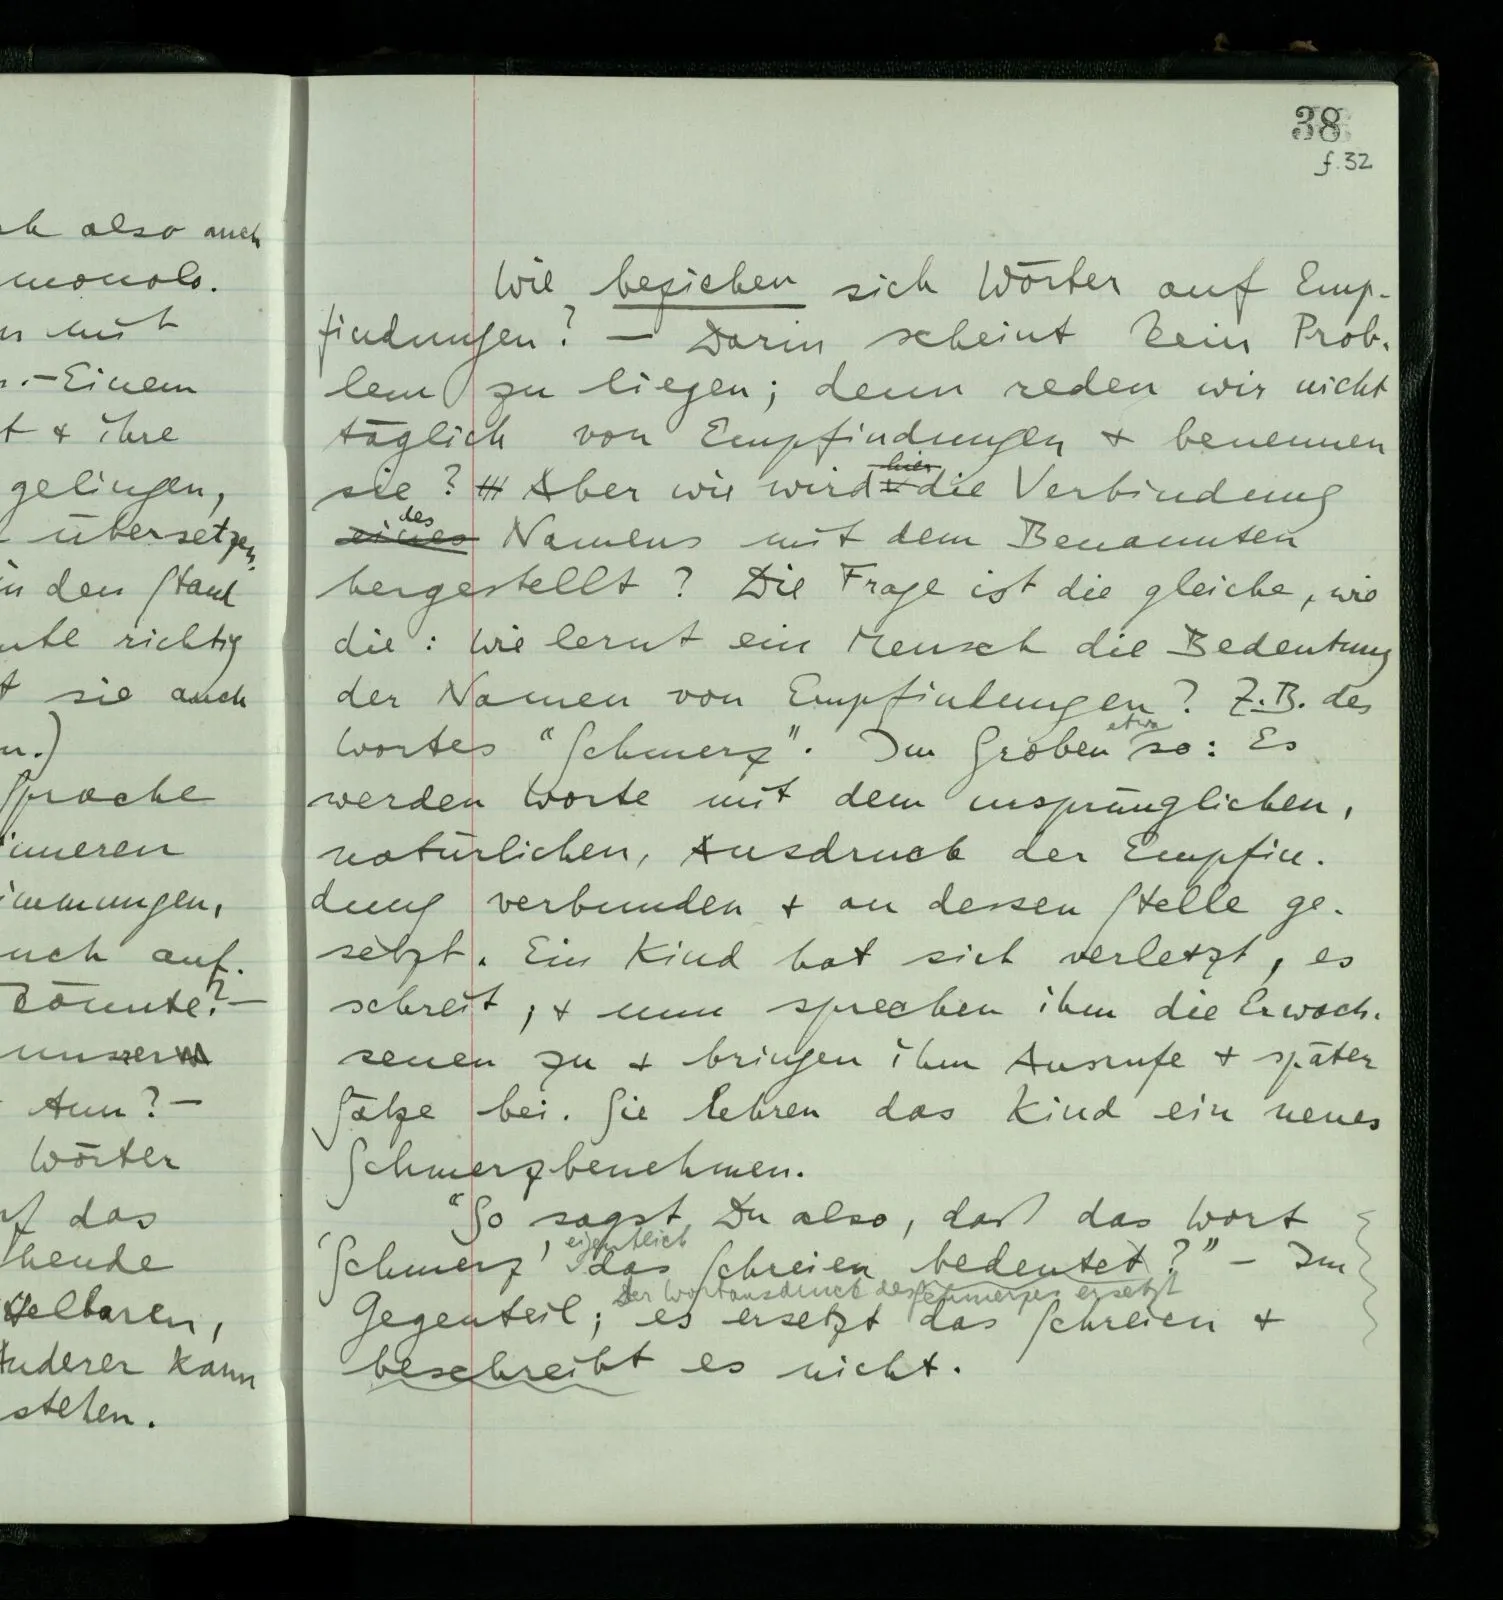 also auch
monolo.
mit
.–Einem
t & ihre
gelingen,
übersetzen,
in den Stand
richtig
t sie auch
n.)
Sprache
inneren
immungen,
auch auf.
könnte? –
unserm
Ann? –
Wörter
auf das
hende
telbaren,
Anderer kann
stehen.
38
f. 32
Wie beziehen sich Wörter auf Emp-
findungen? – Darin scheint kein Prob-
lem zu liegen; denn reden wir nicht
täglich von Empfindungen & benennen
sie? /// Aber wie wird hier die Verbindung
eines des Namens mit dem Benannten
hergestellt? Die Frage ist die gleiche, wie
die: wie lernt ein Mensch die Bedeutung
der Namen von Empfindungen? Z.B. des
Wortes “Schmerz”. Im Groben etwa so: Es
werden Worte mit dem ursprünglichen,
natürlichen, Ausdruck der Empfin-
dung verbunden & an dessen Stelle ge-
setzt. Ein Kind hat sich verletzt, es
schreit; & nun sprechen ihm die Erwach-
senen zu & bringen ihm Ausrufe & später
Sätze bei. Sie lehren das Kind ein neues
Schmerzbenehmen.
“So sagst Du also, daß das Wort
‘Schmerz’ eigentlich das Schreien bedeutet?” – Im
Der Wortausdruck des Schmerzes ersetzt
Gegenteil; es ersetzt das Schreien &
beschreibt es nicht.